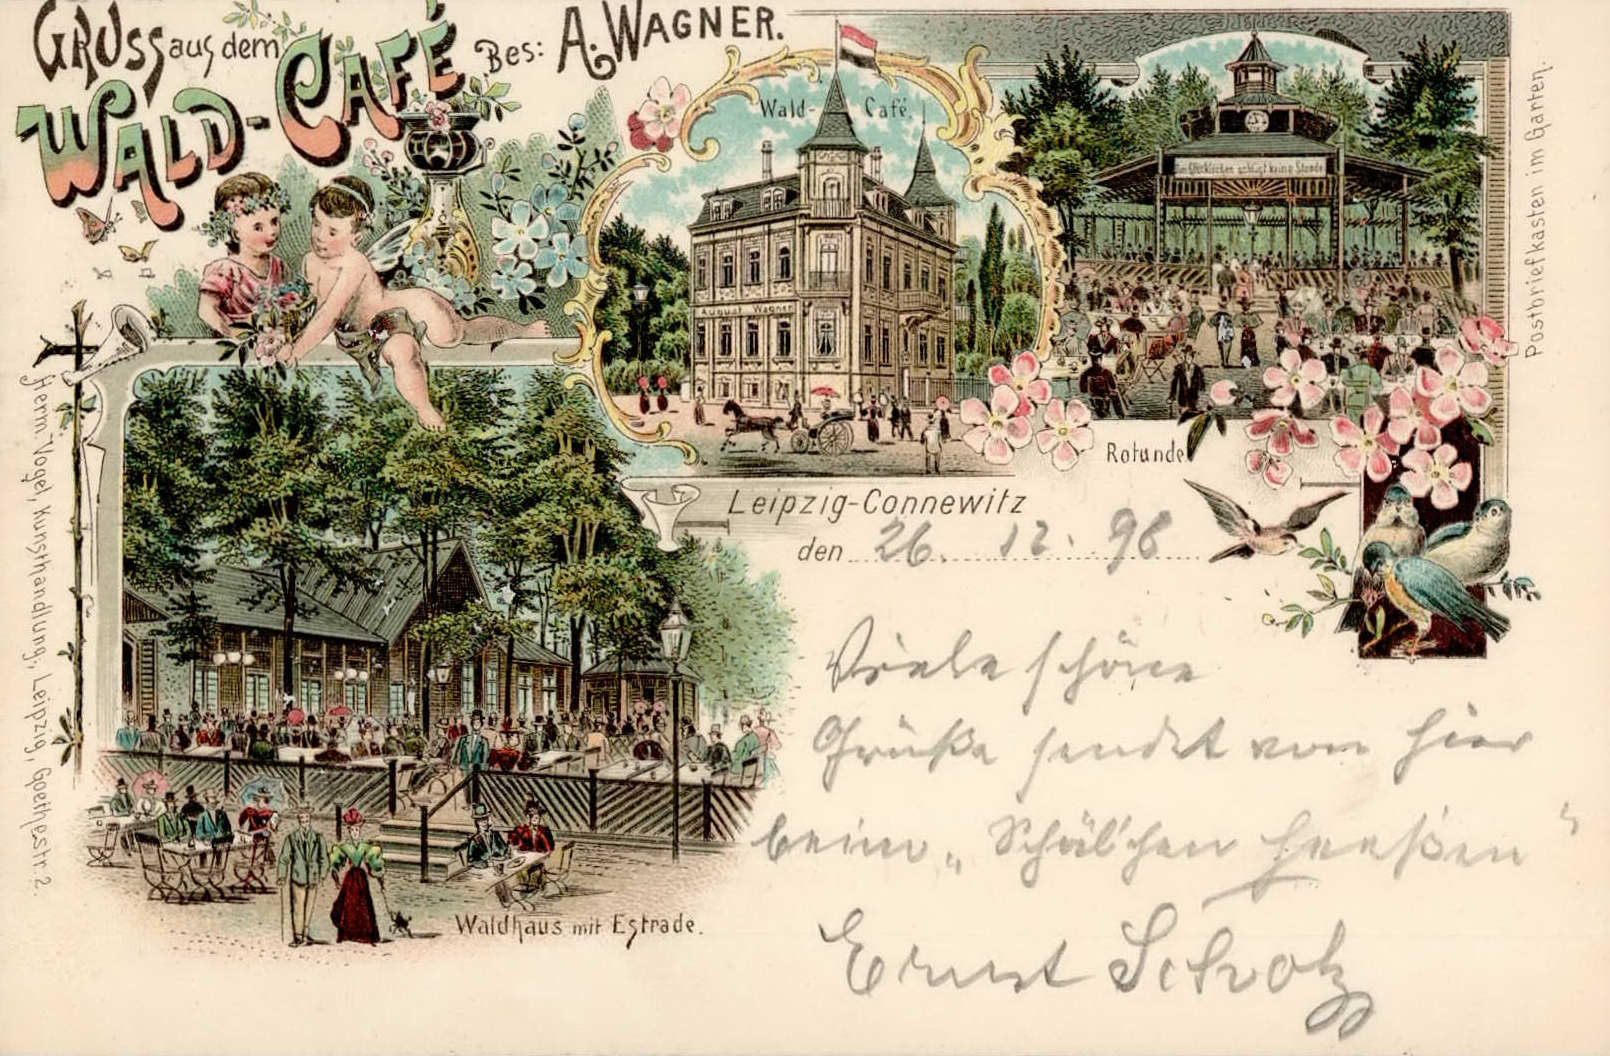 GRUSS aus dem
WALD-CAFÉ
Bes: A. WAGNER.
Wald- Café.
August Wagner
schlägt keine Stunde
Rotunde
Postbriefkasten im Garten.
Herm. Vogel, Kunsthandlung, Leipzig, Goethestr. 2.
Leipzig-Connewitz
den 26. 12. 98
Viele schöne
Grüße sendet von hier
beim „Schälchen Heeßen"
Ernst Scholz
Waldhaus mit Estrade.